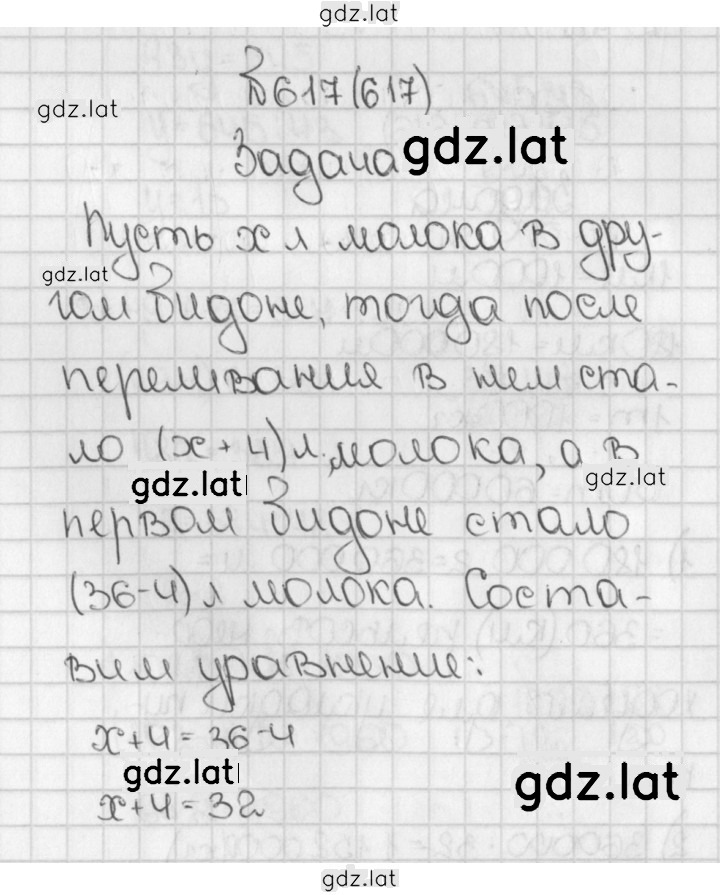 gdz.lat
№617(617)
gdz.lat
Задача gdz.lat
Пусть х л молока в дру-
gdz.lat
гом бидоне, тогда после
переливания в нем ста-
ло (х+4) л молока, а в
gdz.lat gdz.lat
первом бидоне стало
(36-4) л молока. Соста-
вим уравнение:
х+4=36-4
gdz.lat gdz.lat
х+4=32
gdz.lat